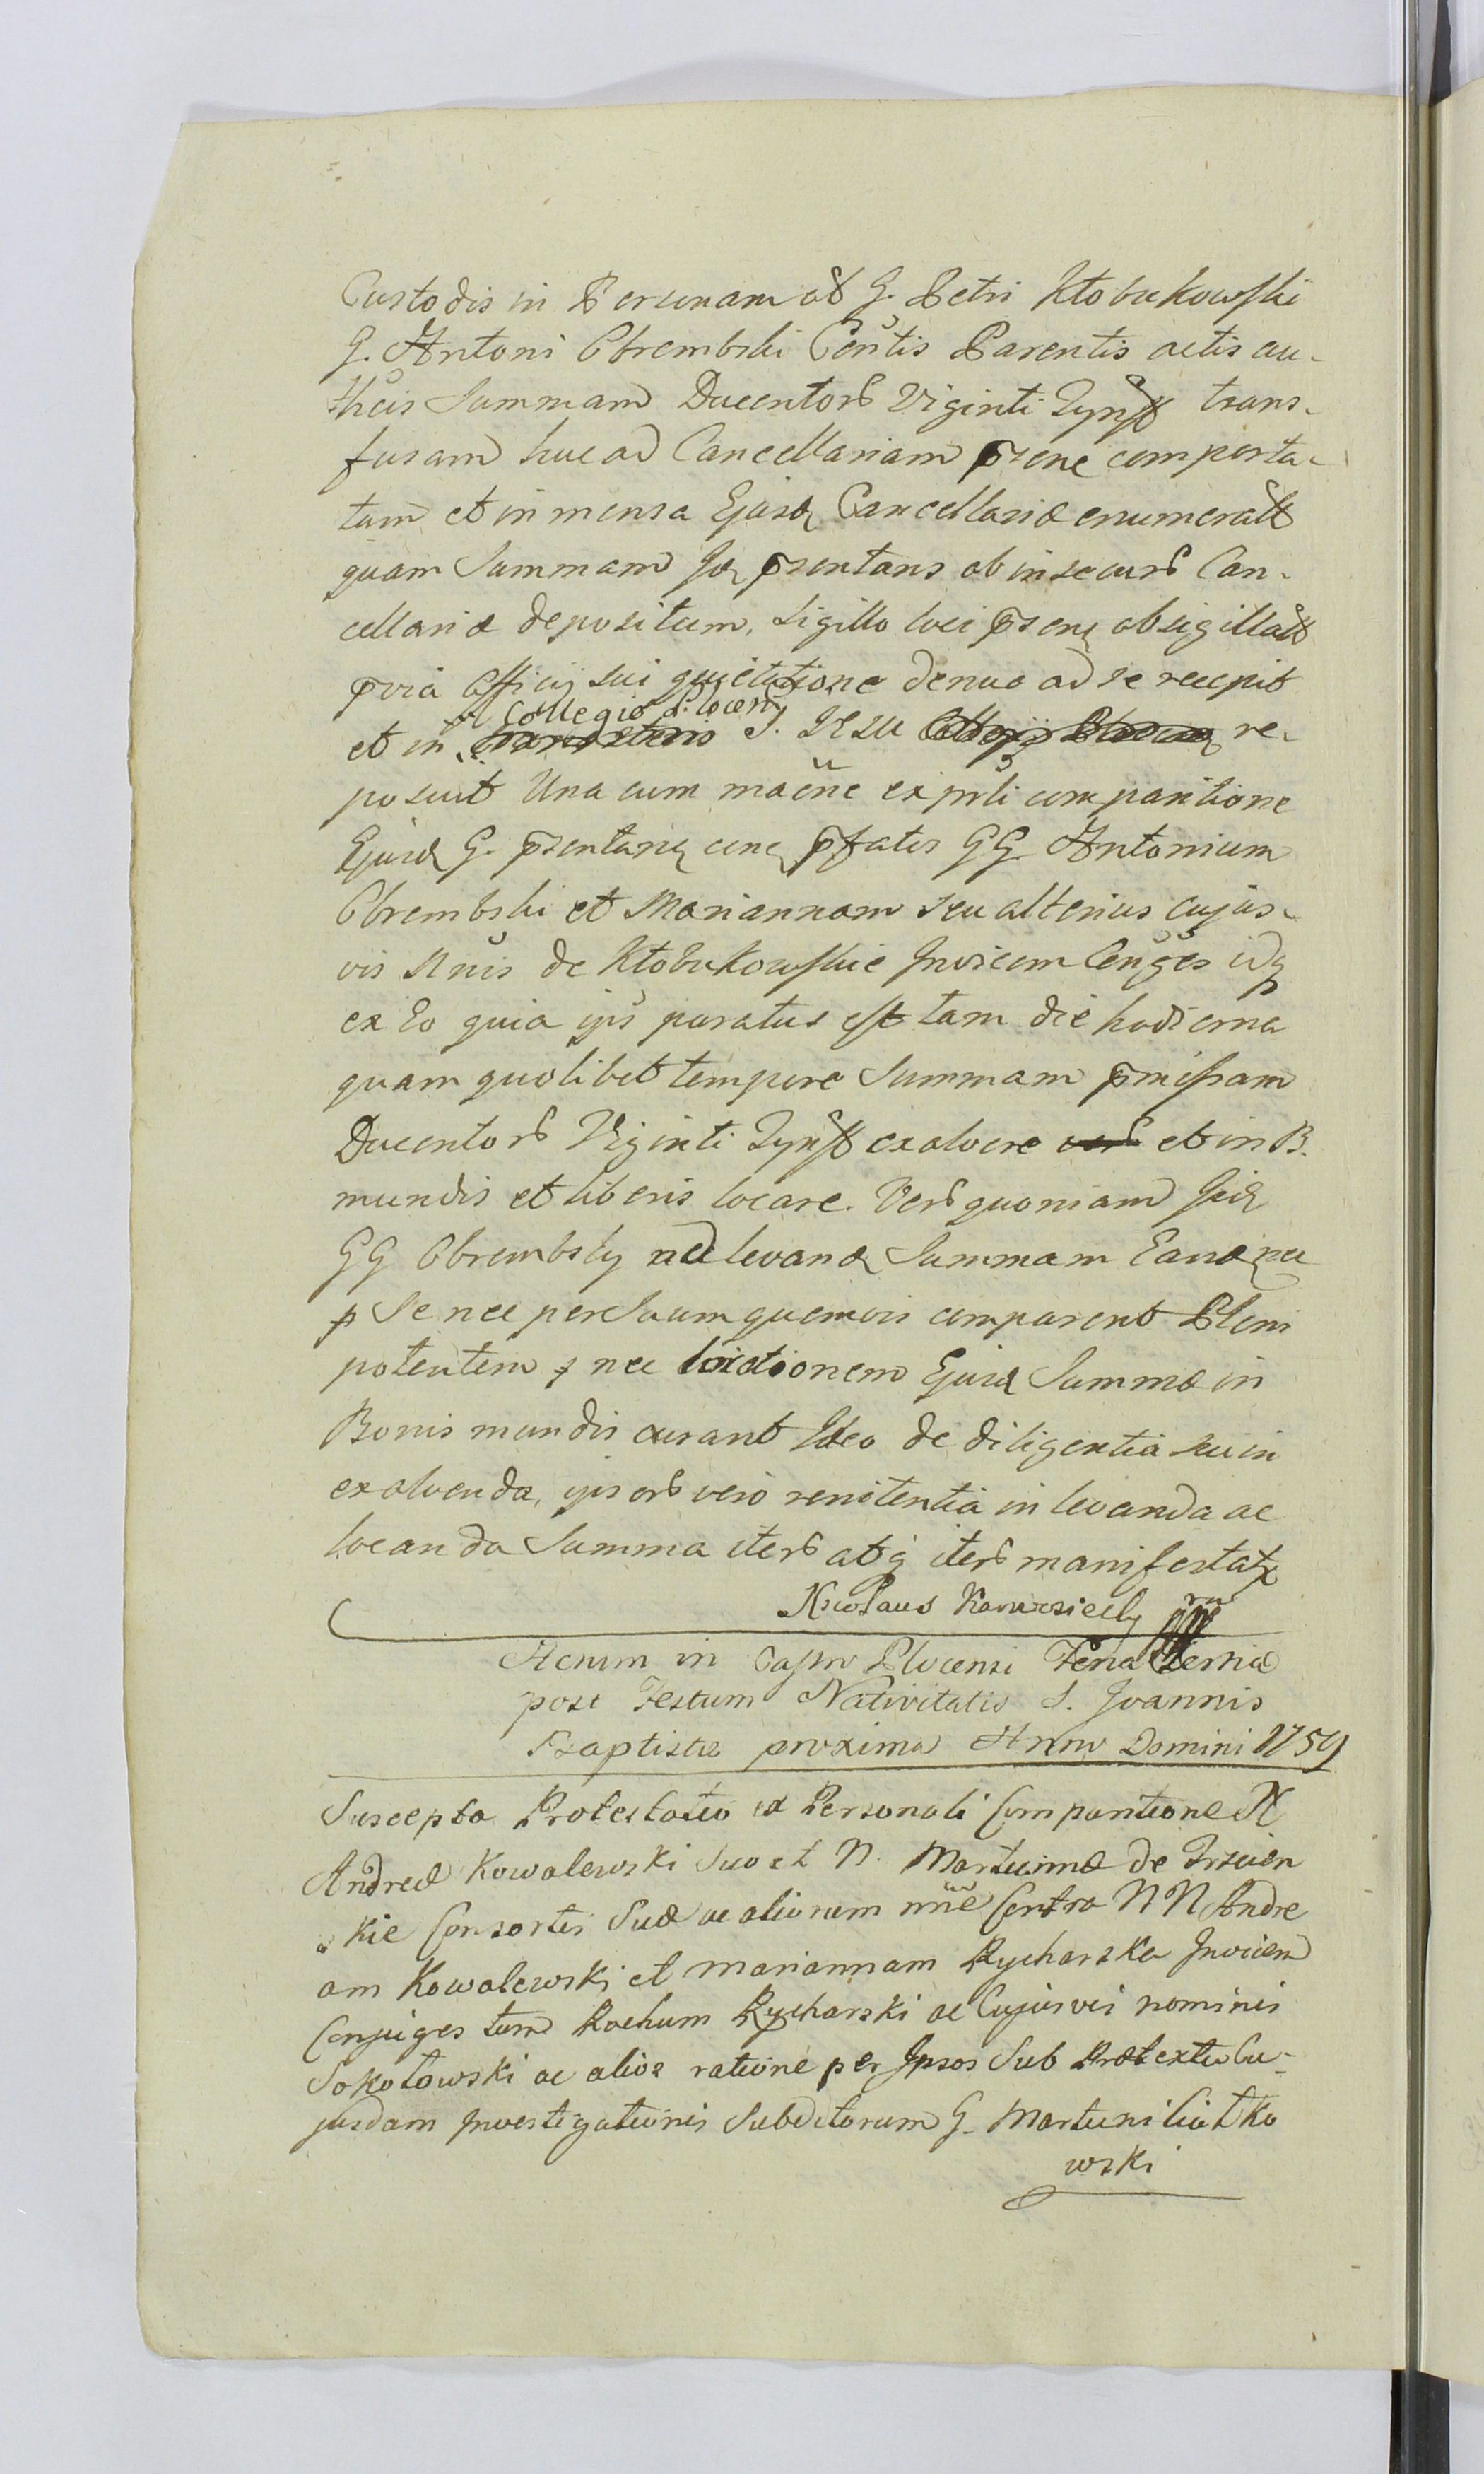 Custodis in Personam ad G. Petri Kłobukowski
G. Antoni Obrembski Centis Parentis actis au-
theis Summam Ducentorũ Viginti Tynff trans-
fusam huc ad Cancellariam p̃sene comporta-
tam et in mensa Ejusd Cancellariæ enumeratã
quam Summam Id p̃sentans ob insecurũ Can-
cellariæ depositum, Sigillo loci p̃sens obsigillatã
p̃via Officij sui quietatione denuo ad se recepit
et in Collegio Plocen S. Jesu re-
posuit Una cum mãene ex pr̃li comparitione
Ejusd G. p̃sentans cone p̃fatos GG Antonium
Obrembski et Mariannam seu alterius cujus-
vis Nñis de Kłobukowskie Invicem Conges idq
ex Eo quia ips paratus est tam die hodierna
quam quolibet tempore Summam p̃missam
Ducentorũ Viginti Tynff exolvere et in B.
mundis et liberis locare. Verũ quoniam Iid
GG Obrembscy ad levand Summam Eand nec
p Se nec per Suum quemvis comparent Pleni
potentem nec locationem Ejusd Summæ in
Bonis mundis curant Ideo de diligentia sui in
exolvenda, ipsorũ vero renitentia in levanda ac
locanda Summa iterũ atq iterũ manifestat
Nicolaus
Actum in Castro Plocensi Feria Tertia
post Festum Nativitatis S. Joannis
Baptistæ proxima Anno Domini 1759
Suscepta Protestatio ex Personali Comparitione N
Andreæ Kowalewski Suo et N. Martinnæ de Trzcien
skie Consortis Suæ ac aliorum nñe Contra NN Andre
am Kowalewski et Mariannam Rycharska Invicem
Conjuges tum Rochum Rycharski ac Cujusvis nominis
Sokołowski ac alios ratione per Ipsos Sub Prætextu Cu-
jusdam Investigationis Subditorum G. Martini Ciotko
wski